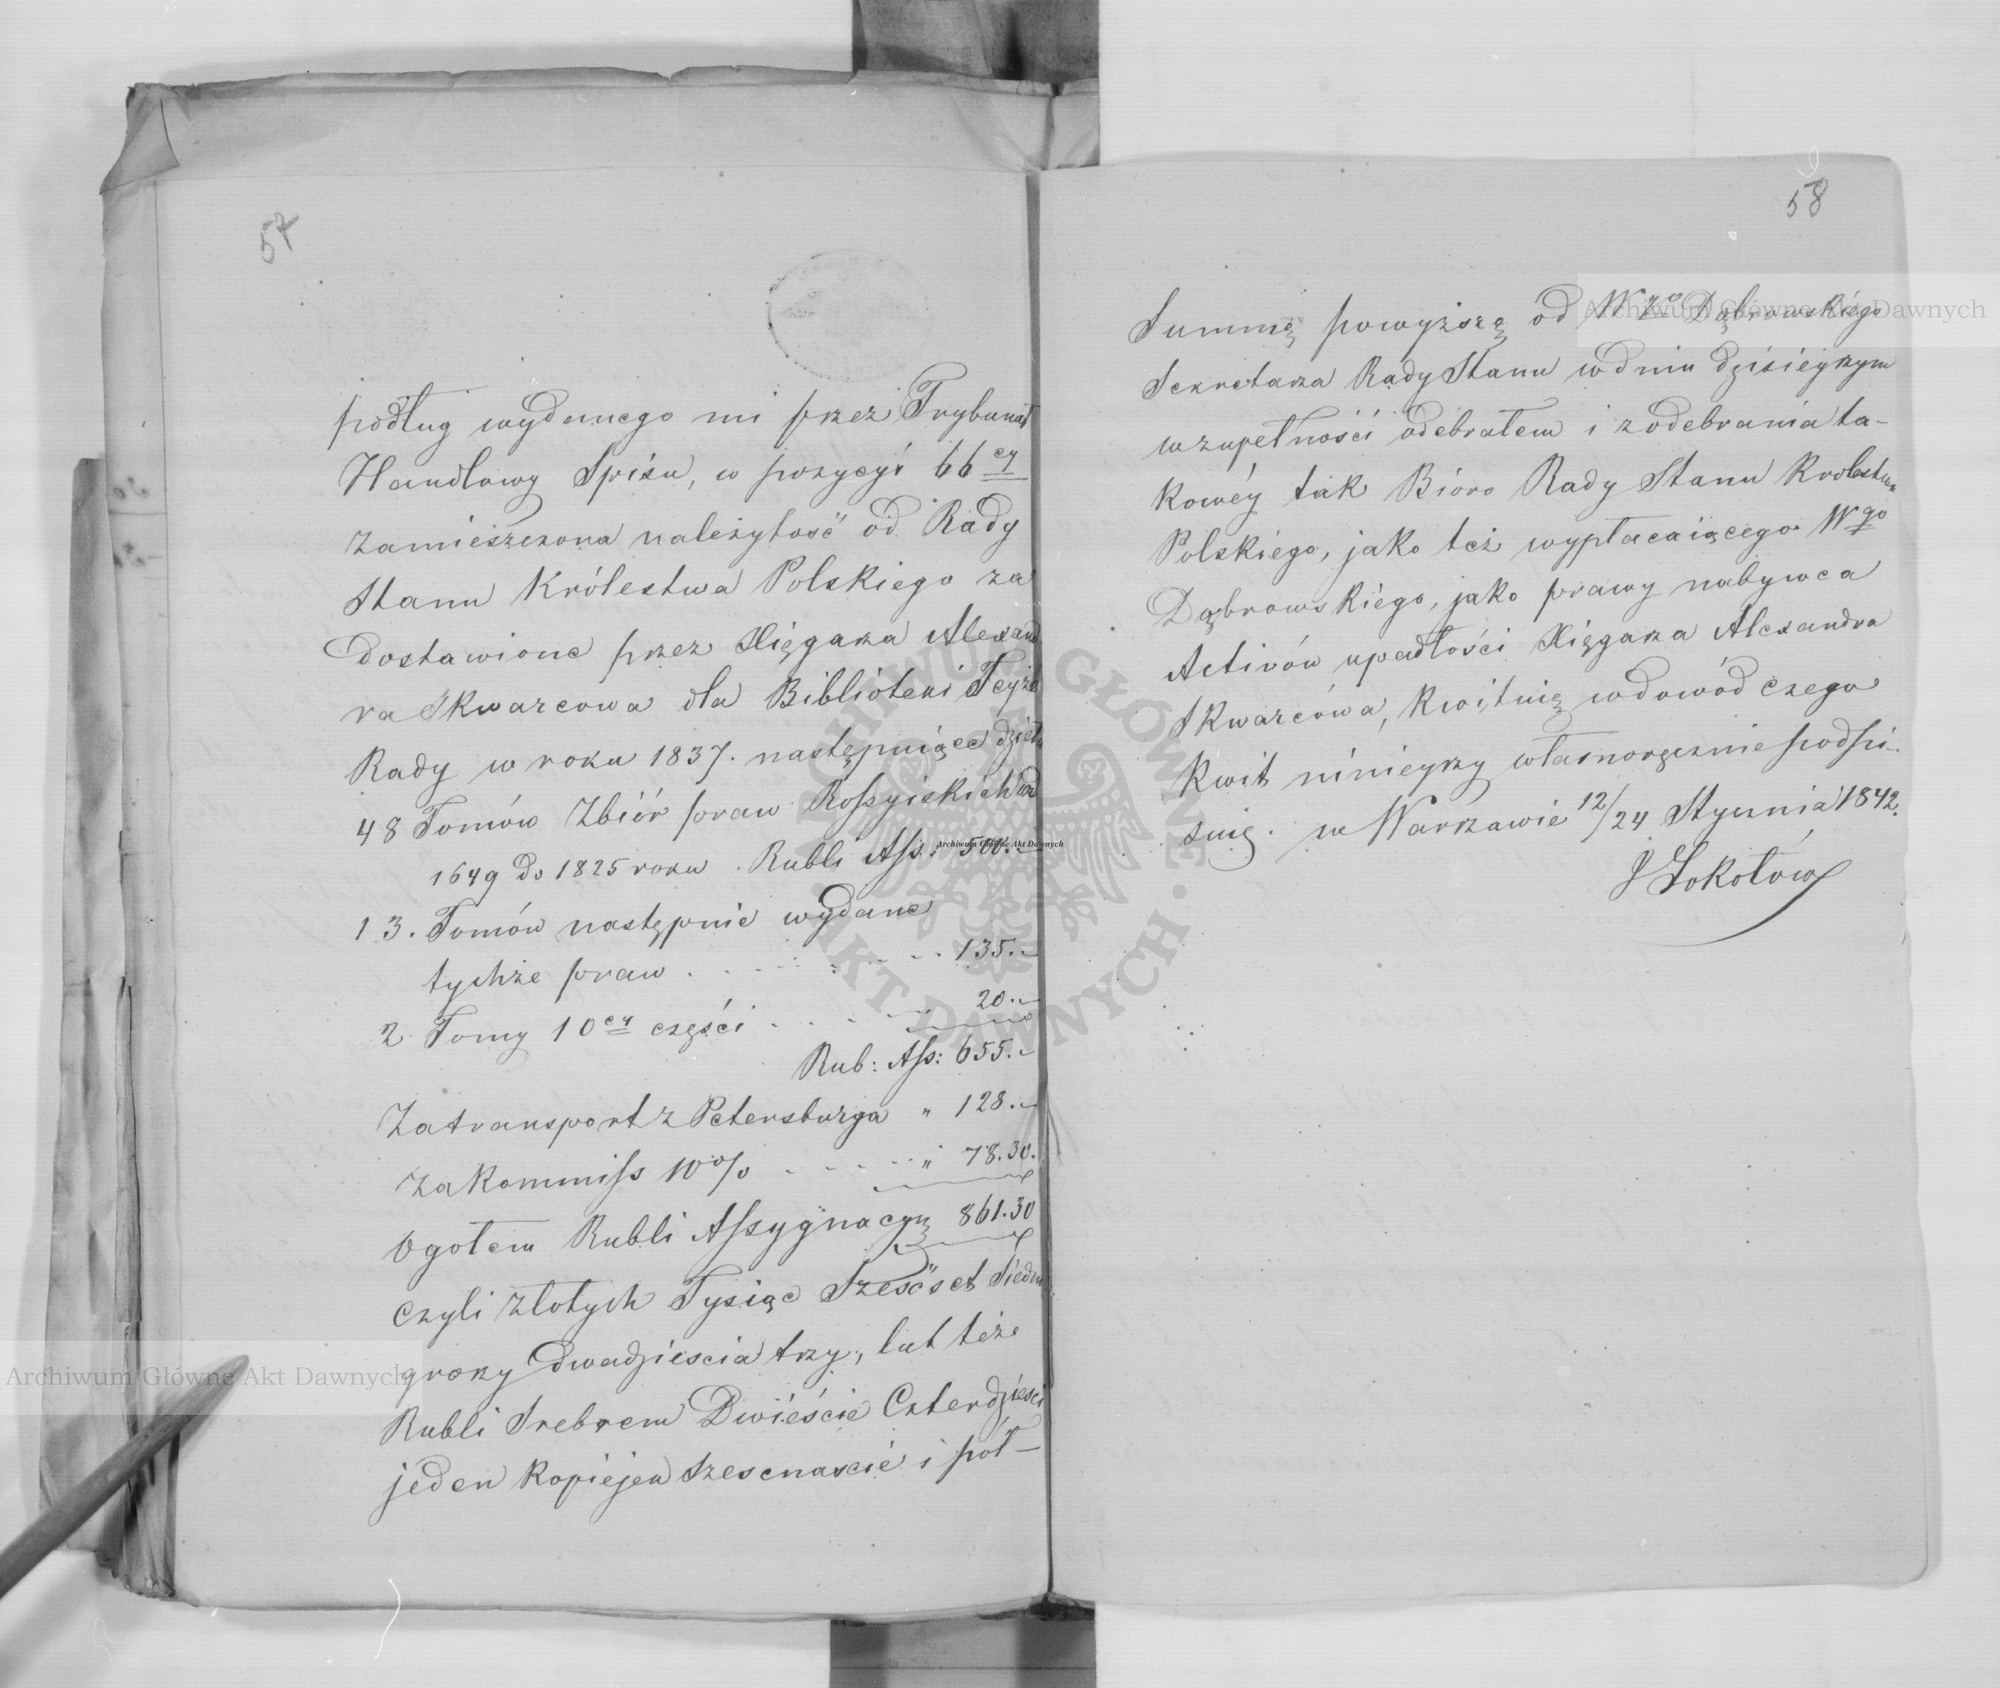 57
podług wydanego mi przez Trybunał
Handlowy Spisu, w pozycyi 66ey
zamieszczona należytość od Rady
Stanu Królestwa Polskiego za
dostawione przez Xięgarza Alexand
ra Skwarcowa dla Biblioteki Teyże
Rady w roku 1837. następuiące dzieła
48 Tomów Zbiór praw Rossyiskich od
1649 do 1825 roku . Rubli Ass: 500.—
13. Tomów następnie wydane
tychże praw . . . . . . . 135.—
2 Tomy 10ey części . . . . 20.—
Rub: Ass: 655.—
Za transport z Petersburga " 128.—
za Kommiss 10% . . . . " 78.30.
Ogołem Rubli Assygnacyą 861.30
czyli złotych Tysiąc Sześćset Siedm
groszy dwadzieścia trzy, lub też
Rubli Srebrem Dwieście Czterdzieści
jeden Kopiejek szesnaście i pół —
58
Summę powyższą od Wgo Dąbrowskiego
Sekretarza Rady Stanu w dniu dzisieyszym
w zupełności odebrałem i z odebrania ta-
kowéy tak Bióro Rady Stanu Królestwa
Polskiego, jako też wypłacaiącego Wgo
Dąbrowskiego, jako prawy nabywca
Activów upadłości Xięgarza Alexandra
Skwarcowa, kwituię w dowód czego
Kwit ninieyszy własnoręcznie podpi-
suię. w Warszawie 12/24 Stycznia 1842.
J Sokołów
Archiwum Główne Akt Dawnych
Archiwum Główne Akt Dawnych
Archiwum Główne Akt Dawnych
ARCHIWUM GŁÓWNE AKT DAWNYCH